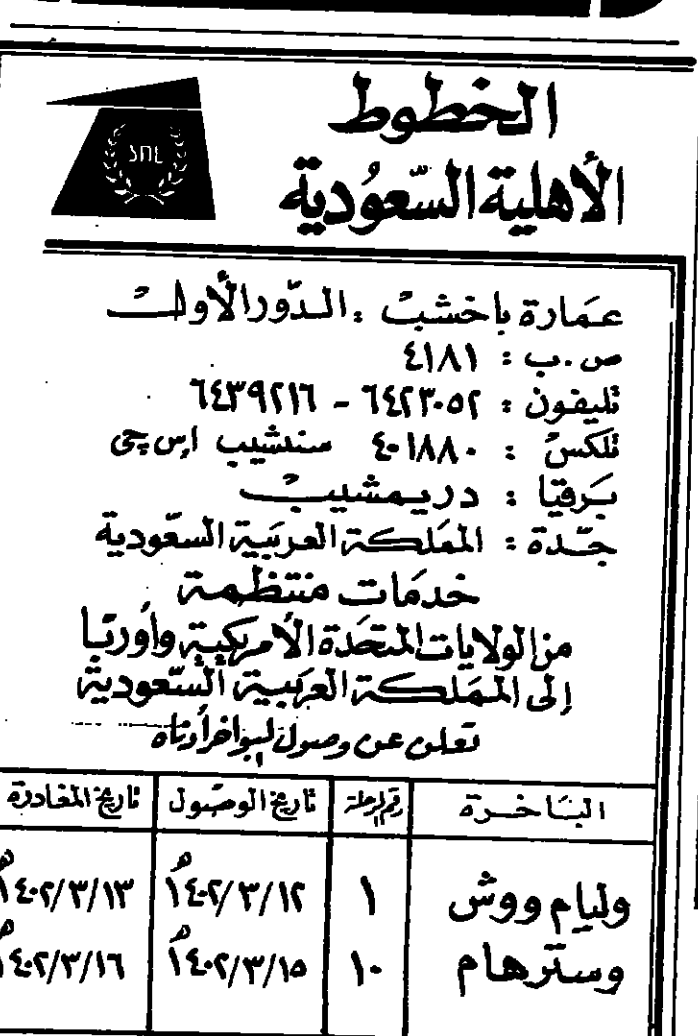 الخطوط
الأهلية السّعُودية
SNL
عمَارة باخشبْ ، الدّور الأولْ
ص.ب : ٤١٨١
تليفون : ٦٤٢٣٠٥٢ - ٦٤٣٩٢١٦
تلكسْ : ٤٠١٨٨٠ سنشيب اس جي
بَرقيا : دريمشيبْ
جَدة : المملكة العربية السعّودية
خدمَات منتظمة
من الولايات المتحَدة الأمريكية وأوربا
إلى المملكة العربية السّعودية
تعلن عن وصول لبواخر أدناه
الباخرة | رقم الرحلة | تاريخ الوصُول | تاريخ المغادرة
وليام ووش | ١ | ١٤٠٢/٣/١٢هـ | ١٤٠٢/٣/١٣هـ
وسترهام | ١٠ | ١٤٠٢/٣/١٥هـ | ١٤٠٢/٣/١٦هـ